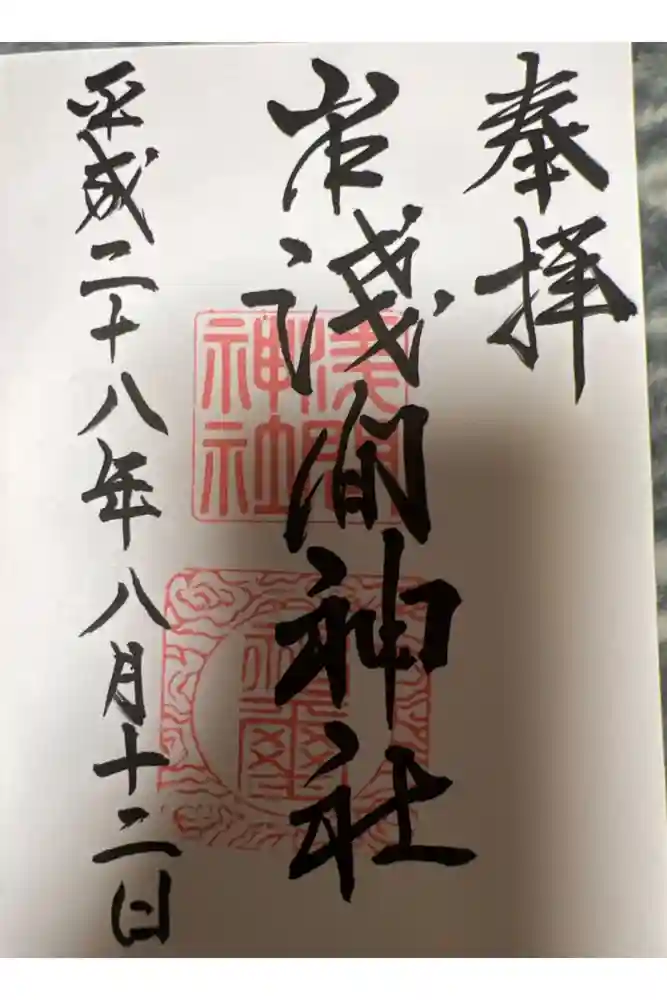 奉拝
岩淺間神社
平成二十八年八月十二日
浅間
神社